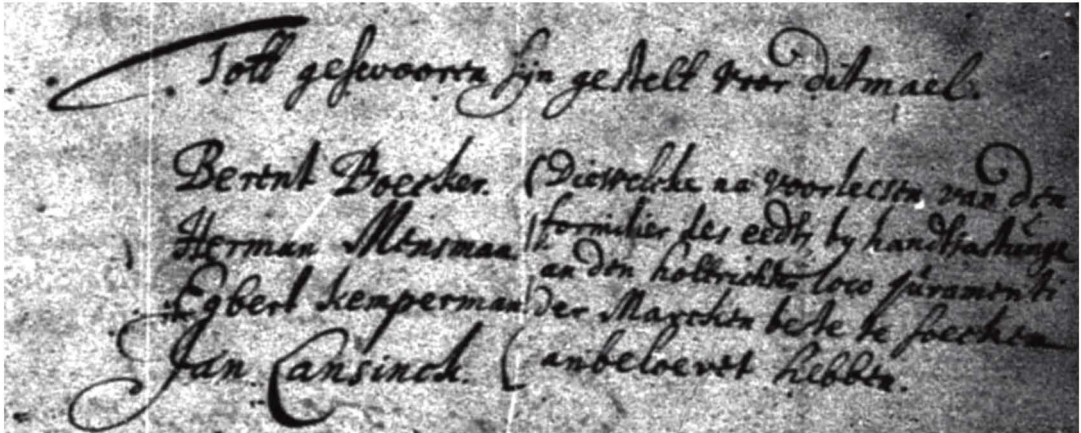 Tott geswooren sijn gestelt voor ditmael.
Berent Boecker.
Herman Mensman
Egbert Kemperman
Jan Lansinck.
Diewelcke na voorleesen van den
formilier des eedts by handtastunge
an den holtrichter loco juramenti
der Marcken beste te soecken
anbeloevet hebben.